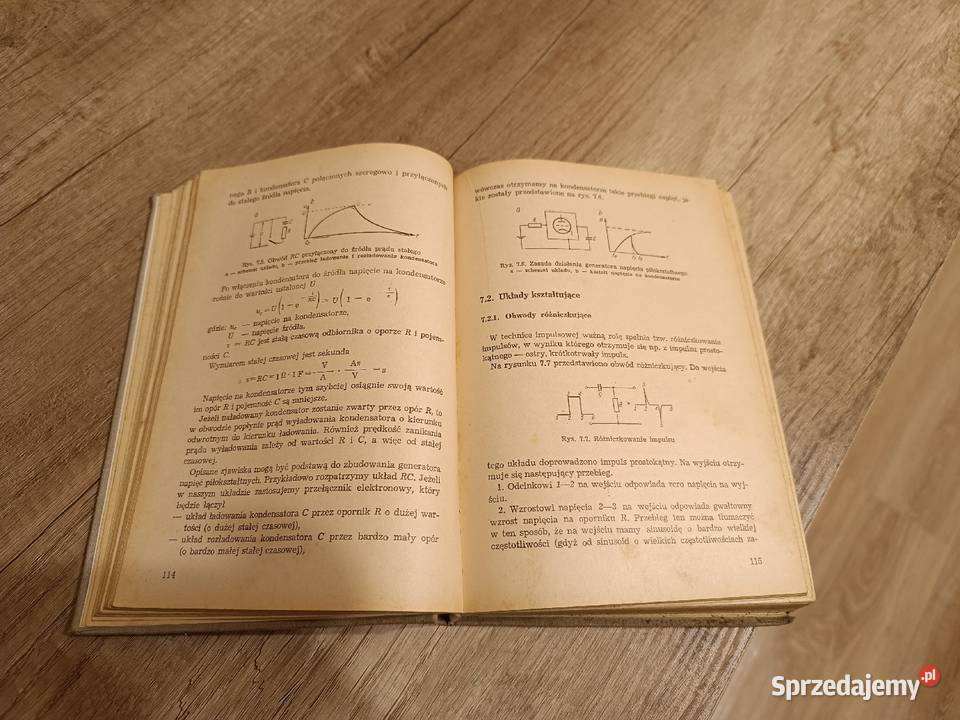 nego R i kondensatora C połączonych szeregowo i przyłączonych
do stałego źródła napięcia.
Rys. 7.5. Obwód RC przyłączony do źródła prądu stałego
a — schemat układu, b — przebieg ładowania i rozładowania kondensatora
Po włączeniu kondensatora do źródła napięcie na kondensatorze
rośnie do wartości ustalonej U
gdzie: uc — napięcie na kondensatorze,
U — napięcie źródła,
τ = RC jest stałą czasową odbiornika o oporze R i pojem-
ności C.
Wymiarem stałej czasowej jest sekunda
τ = RC = 1 Ω · 1 F = V/A · As/V = s
Napięcie na kondensatorze tym szybciej osiągnie swoją wartość
im opór R i pojemność C są mniejsze.
Jeżeli naładowany kondensator zostanie zwarty przez opór R, to
w obwodzie popłynie prąd wyładowania kondensatora o kierunku
odwrotnym do kierunku ładowania. Również prędkość zanikania
prądu wyładowania zależy od wartości R i C, a więc od stałej
czasowej.
Opisane zjawiska mogą być podstawą do zbudowania generatora
napięć piłokształtnych. Przykładowo rozpatrzymy układ RC. Jeżeli
w naszym układzie zastosujemy przełącznik elektronowy, który
będzie łączył
— układ ładowania kondensatora C przez opornik R o dużej war-
tości (o dużej stałej czasowej),
— układ rozładowania kondensatora C przez bardzo mały opór
(o bardzo małej stałej czasowej),
114
wówczas otrzymamy na kondensatorze takie przebiegi napięć, ja-
kie zostały przedstawione na rys. 7.6.
Rys. 7.6. Zasada działania generatora napięcia piłokształtnego
a — schemat układu, b — kształt napięcia na kondensatorze
7.2. Układy kształtujące
7.2.1. Obwody różniczkujące
W technice impulsowej ważną rolę spełnia tzw. różniczkowanie
impulsów, w wyniku którego otrzymuje się np. z impulsu prosto-
kątnego — ostry, krótkotrwały impuls.
Na rysunku 7.7 przedstawiono obwód różniczkujący. Do wejścia
Rys. 7.7. Różniczkowanie impulsu
tego układu doprowadzono impuls prostokątny. Na wyjściu otrzy-
muje się następujący przebieg.
1. Odcinkowi 1—2 na wejściu odpowiada zero napięcia na wyj-
ściu.
2. Wzrostowi napięcia 2—3 na wejściu odpowiada gwałtowny
wzrost napięcia na oporniku R. Przebieg ten można tłumaczyć
w ten sposób, że na wejściu mamy sinusoidę o bardzo wielkiej
częstotliwości (gdyż od sinusoid o wielkich częstotliwościach za-
115
Sprzedajemy.pl